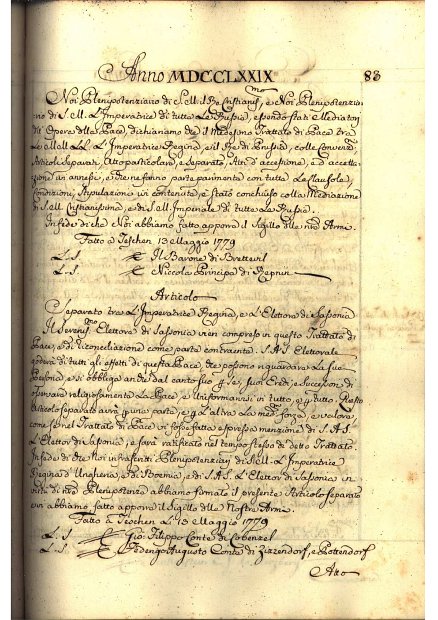 Anno MDCCLXXIX
83
Noi Plenipotenziario di S. M. il Re Cristianis.mo, e Noi Plenipotenzia
rio di S. M. L'Imperatrice di tutte Le Russie, essendo stati Mediatori
dell' Opera della Pace, dichiariamo che il Medesimo Trattato di Pace tra
Le L'Imperatrice Regina, e il Re di Prussia, colle Convenzi
Articoli Separati, Atto particolare, e Separato, Atti d'accessione, ed accetta
zione in annessi, e che ne fanno parte, parimente con tutte Le Clausole,
Condizioni, Stipulazione ivi contenute, è stato conchiuso colla Mediazione
di S. M. Cristianissima, e di S. M. Imperiale di tutte Le Russie.
In fede di che Noi abbiamo fatto apporre il Sigillo delle nre Armi.
Fatto a Teschen 13 Maggio 1779
L. S. Il Barone di Brettevil
L. S. Niccolo Principe di Repnin
Articolo
Separato tra L'Imperatrice Regina, e L'Elettore di Sassonia
Il Sereniss.mo Elettore di Sassonia vien compreso in questo Trattato di
Pace, e di riconciliazione come parte contraente. S. A. S. Elettorale
goderà di tutti gli effetti di questa Pace, che possono riguardare La sua
Persona, e si obbliga anche dal canto suo p Se, suoi Eredi, e Successori di
osservare religiosamente La Pace, e uniformarvisi in tutto, e p tutto. Questo
Articolo separato avrà p una parte, e p L'altra La med.ma forza, e valore,
come se nel Trattato di Pace vi fosse fatta espressa menzione di S. A. S.
L'Elettor di Sassonia, e sarà ratificato nel tempo stesso di detto Trattato.
In fede di che Noi infrascritti Plenipotenziarj di S. M. L'Imperatrice
Regina d'Ungheria, e di Boemia, e di S. A. S. L'Elettor di Sassonia in
virtù di nre Plenipotenze abbiamo firmato il presente Articolo separato
e vi abbiamo fatto apporre il Sigillo delle Nostre Armi.
Fatto a Teschen Li 13 Maggio 1779
L. S. Gio: Filippo Conte di Cobenzel
L. S. Federigo Augusto Conte di Zizzendorf, e Pottendorf
Atto